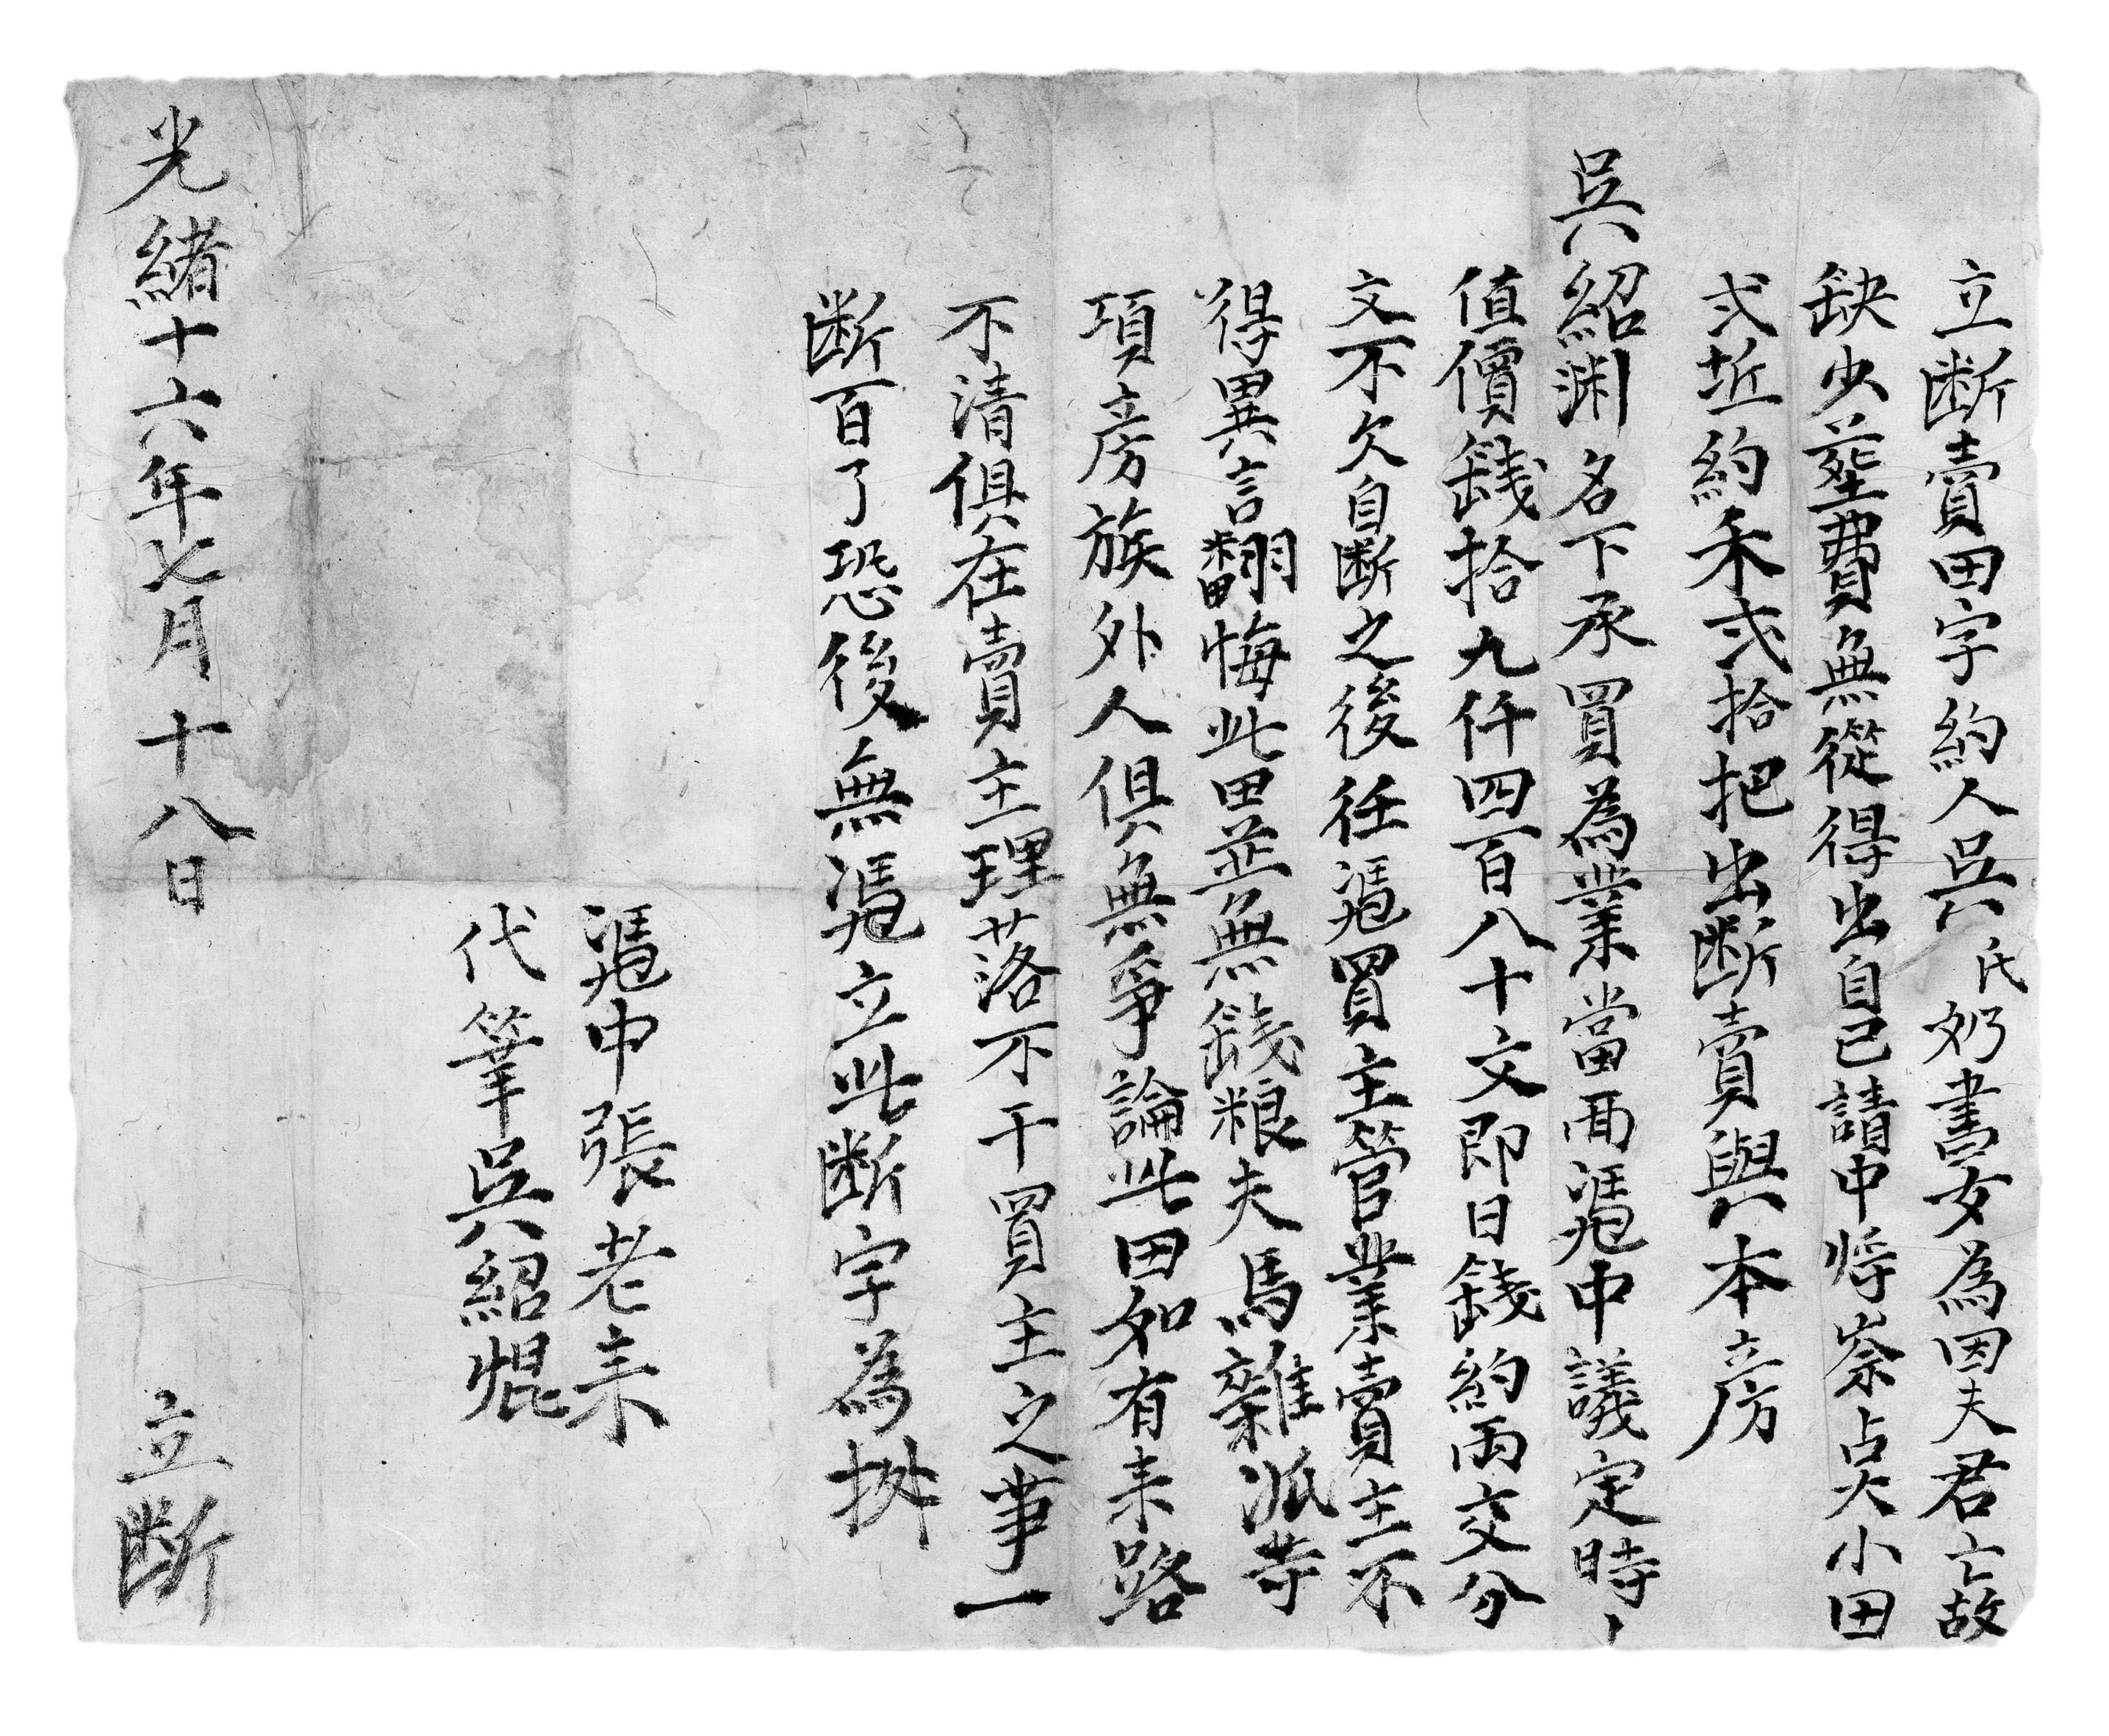 立断賣田字約人吳氏妳書女為因夫君亡故
缺少塟費無從得出自己請中将岽㸃小田
弍坵約禾弍拾把出断賣與本房
吳紹渊名下承買為業當面憑中議定時丶
值價錢拾九仟四百八十文即日錢約両交分
文不欠自断之後任憑買主管業賣主不
得異言翻悔此田並無錢粮夫馬雜派等
項房族外人俱無爭論此田如有来路
不清俱在賣主理落不干買主之事一
断百了恐後無憑立此断字為㨿
憑中張老来
代筆吳紹焜
光緒十六年七月十八日 立断